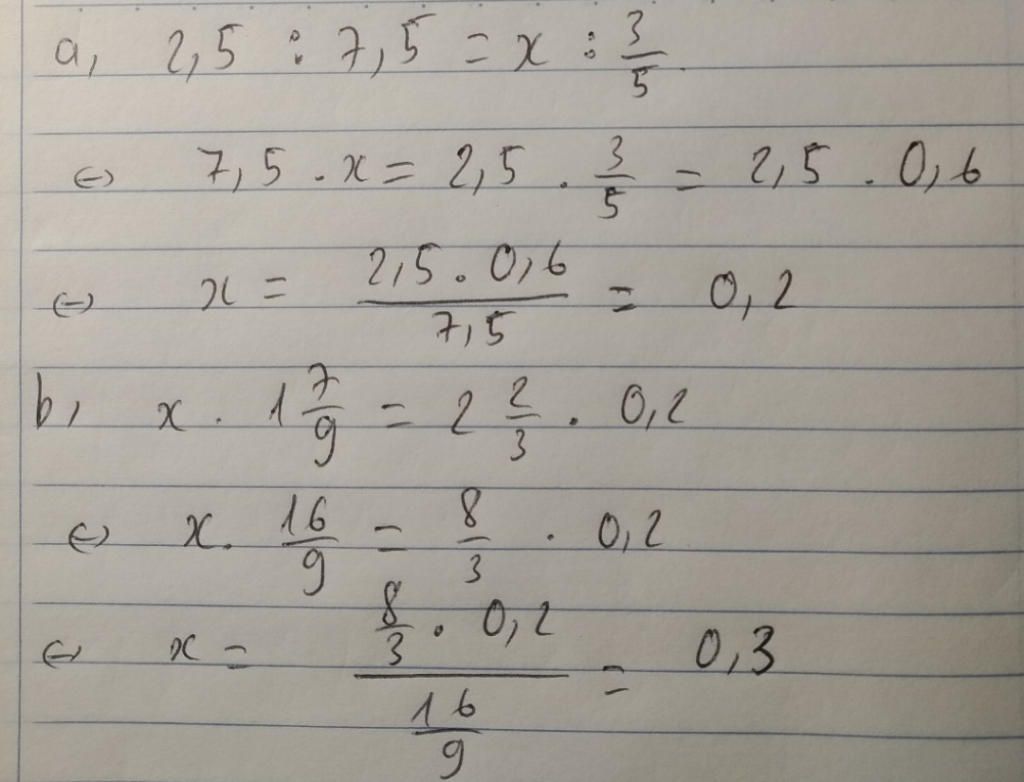 a, 2,5 : 7,5 = x : 3/5
⇔ 7,5 . x = 2,5 . 3/5 = 2,5 . 0,6
⇔ x = (2,5 . 0,6)/7,5 = 0,2
b, x . 1 7/9 = 2 2/3 . 0,2
⇔ x . 16/9 = 8/3 . 0,2
⇔ x = (8/3 . 0,2)/(16/9) = 0,3